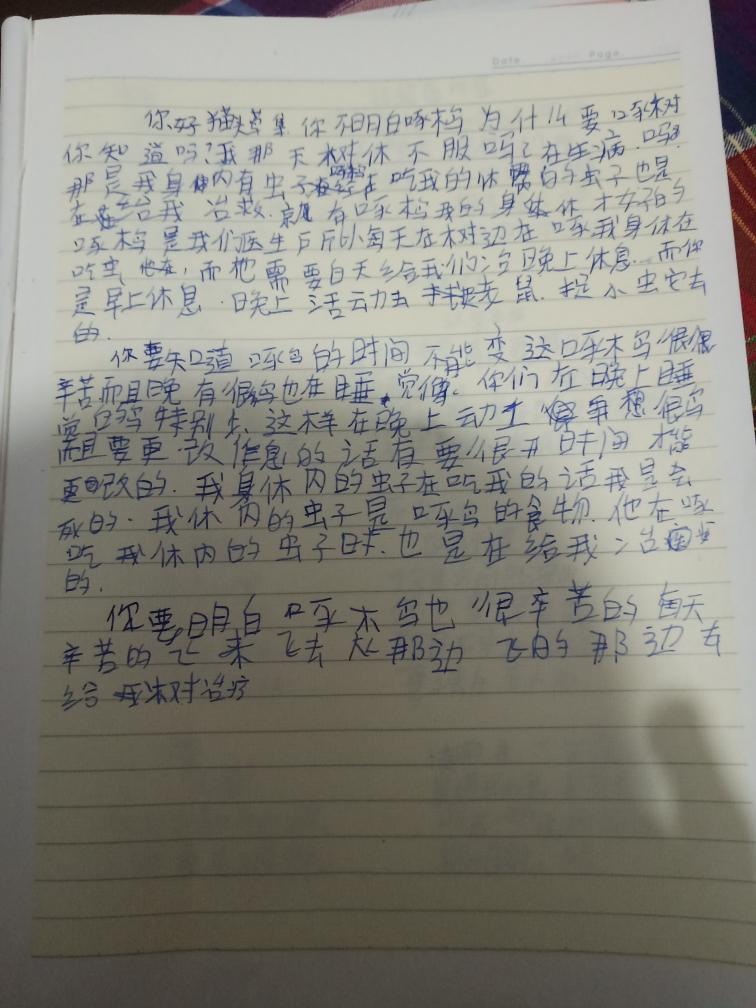 Date Page
你好猫头鹰 你不明白啄木鸟为什么要啄树
你知道吗?我那天树体不服吗?在生病.吗?
那是我身体内有虫子在吃我的体 的虫子也是
在给我治救. 有啄木鸟我的身体才好的
啄木鸟是我们医生 所以每天在树边在啄我身体在
吃虫 他在,而他需要白天给我们治晚上休息.而你
是早上休息.晚上活动去 老鼠.捉小虫它去
的.
你要知道啄鸟的时间不能变这啄木鸟很
辛苦而且晚有很鸟也在睡觉 你们在晚上睡
觉的鸟特别 这样在晚上动 想很鸟
而且要更改作息的话有要很开时间才能
更改的.我身体内的虫子在吃我的话我是会
死的.我体内的虫子是啄鸟的食物.他在啄
吃我体内的虫子时.也是在给我治
的.
你要明白啄木鸟也很辛苦的每天
辛苦的飞来飞去从那边飞的那边去
给 树治疗